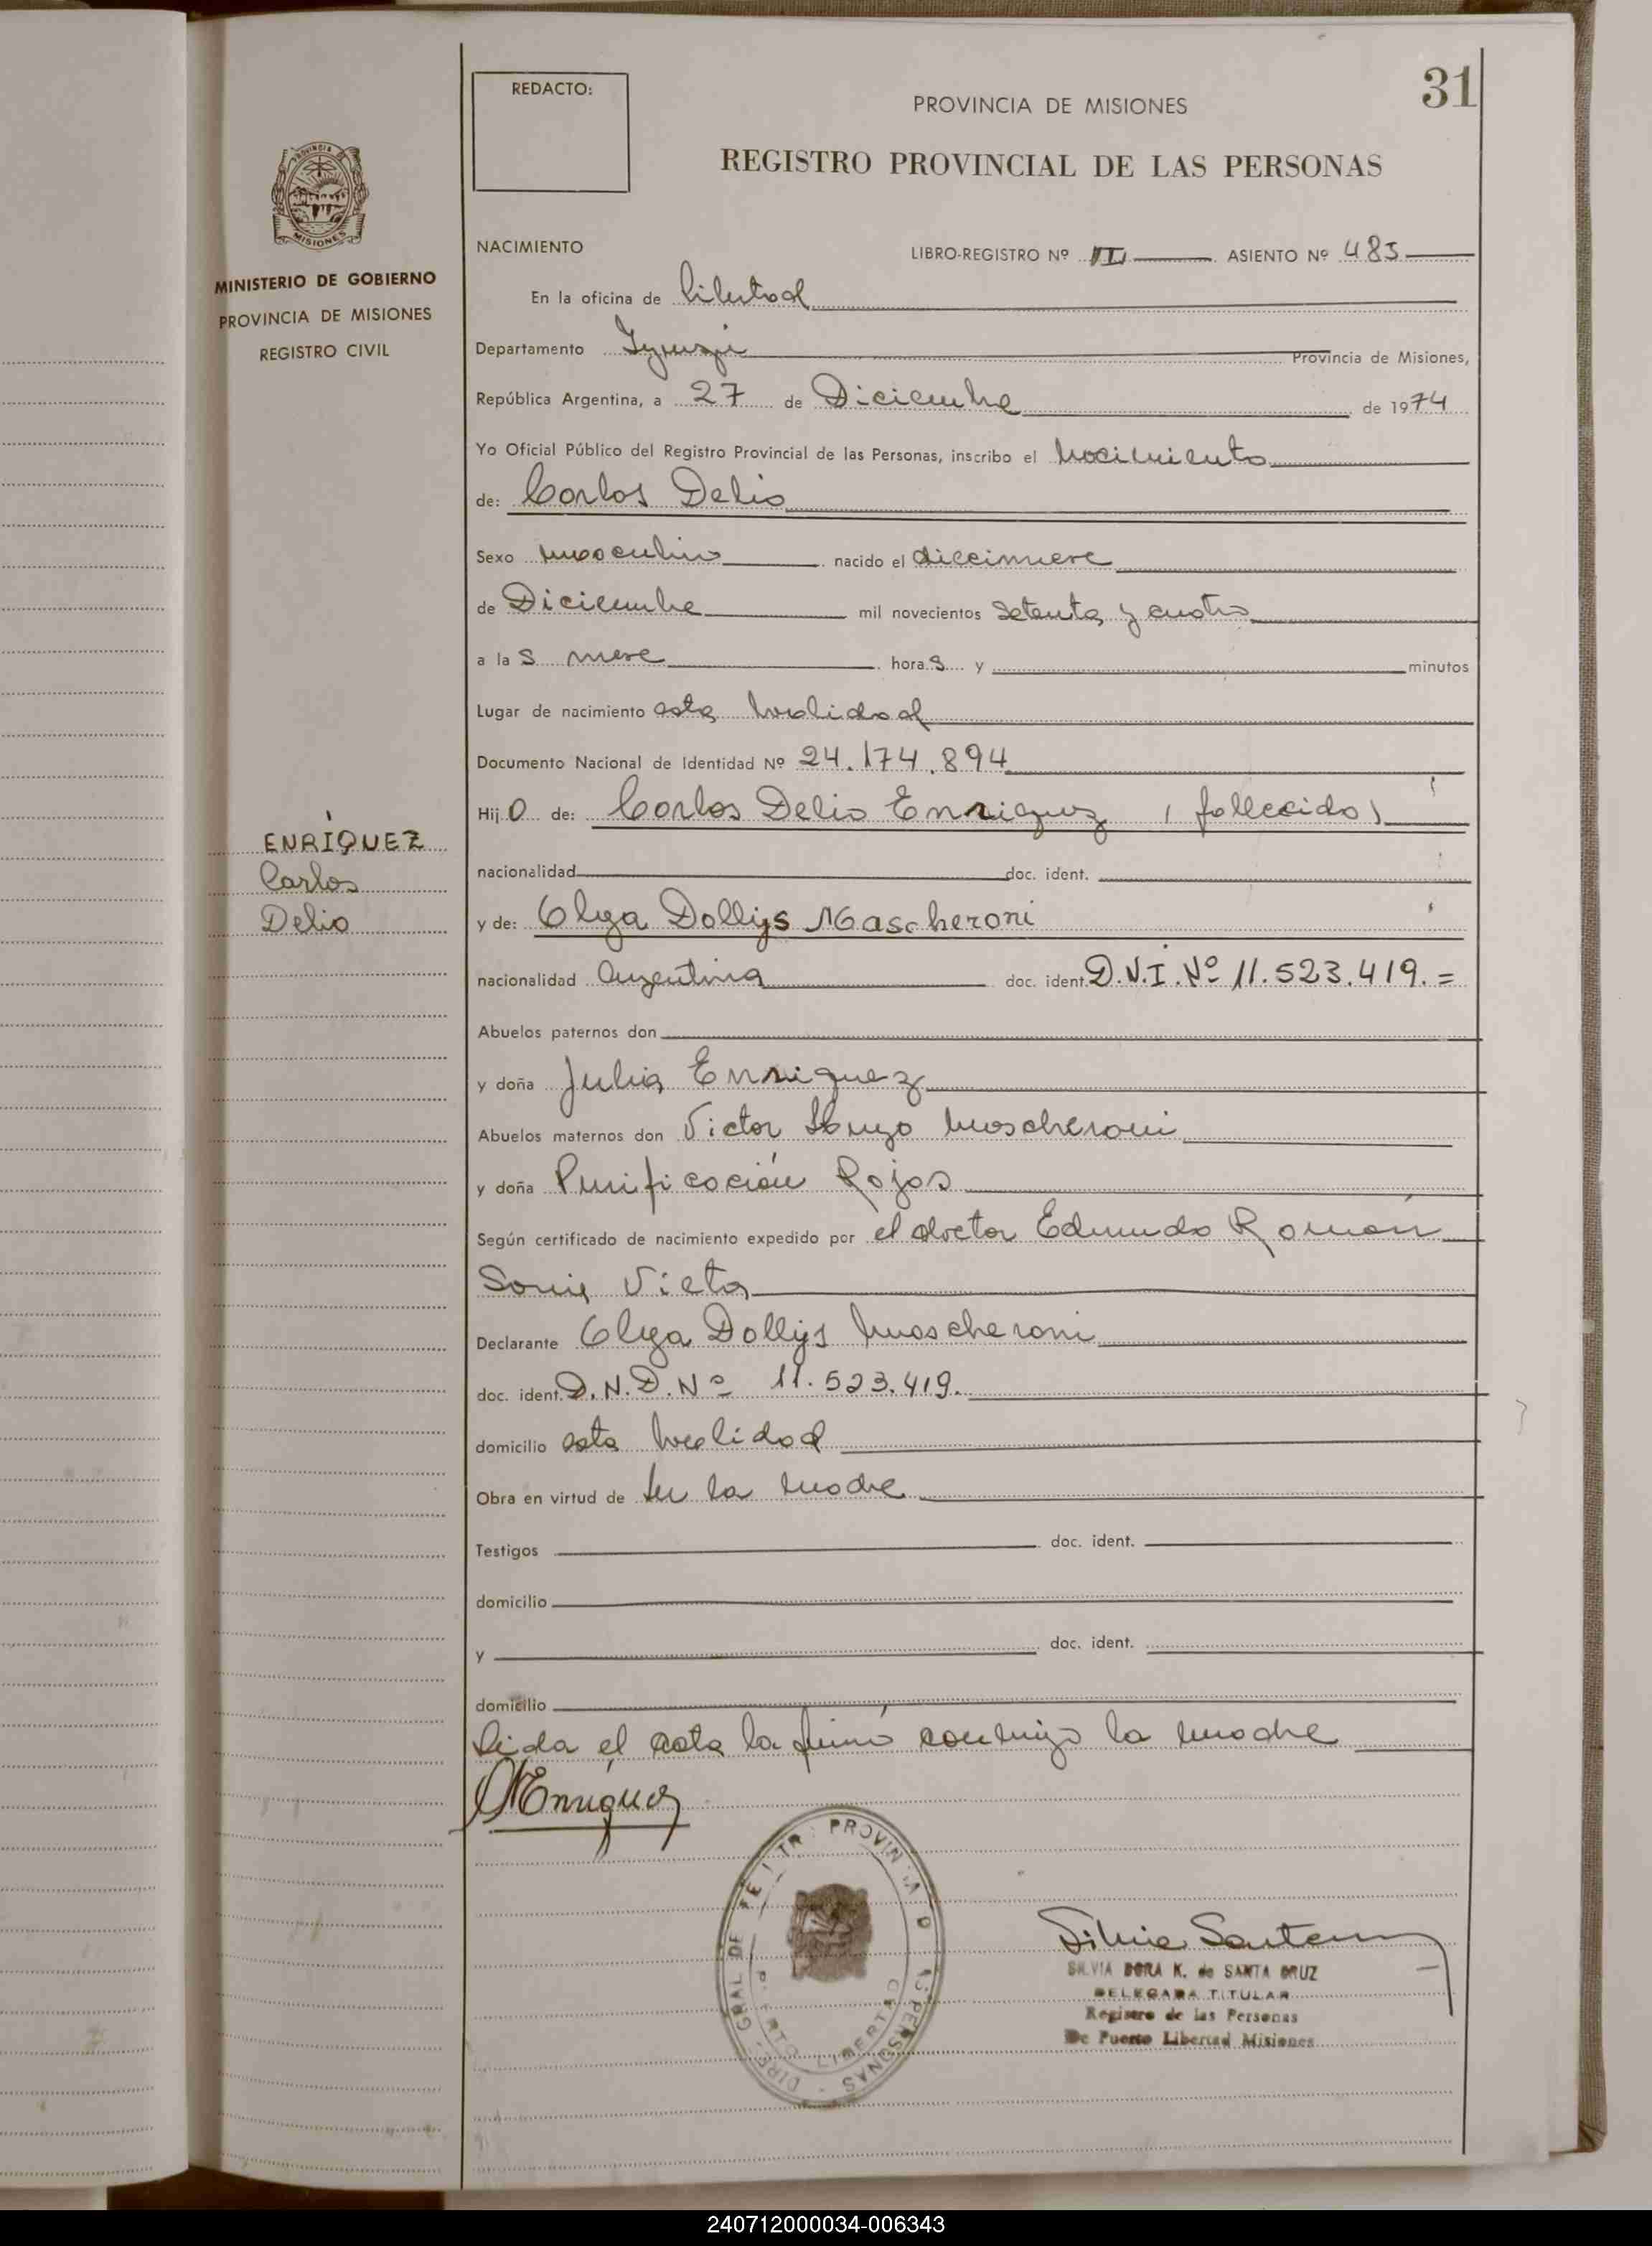 31
REDACTO:
PROVINCIA DE MISIONES
REGISTRO PROVINCIAL DE LAS PERSONAS
PROVINCIA
MISIONES
MINISTERIO DE GOBIERNO
PROVINCIA DE MISIONES
REGISTRO CIVIL
NACIMIENTO LIBRO-REGISTRO Nº II ASIENTO Nº 483
En la oficina de Libertad
Departamento Iguazú Provincia de Misiones,
República Argentina, a 27 de Diciembre de 1974
Yo Oficial Público del Registro Provincial de las Personas, inscribo el nacimiento
de: Carlos Delio
Sexo masculino nacido el diecinueve
de Diciembre mil novecientos setenta y cuatro
a las nueve horas y minutos
Lugar de nacimiento esta localidad
Documento Nacional de Identidad Nº 24.174.894
Hijo de: Carlos Delio Enriquez (fallecido)
ENRÍQUEZ
Carlos
Delio
nacionalidad doc. ident.
y de: Olga Dollys Mascheroni
nacionalidad Argentina doc. ident. D.N.I. Nº 11.523.419.=
Abuelos paternos don
y doña Julia Enriquez
Abuelos maternos don Victor Hugo Mascheroni
y doña Purificación Rojas
Según certificado de nacimiento expedido por el doctor Edmundo Román
Vieta
Declarante Olga Dollys Mascheroni
doc. ident. D.N.D. Nº 11.523.419.
domicilio esta localidad
Obra en virtud de ser la madre
Testigos doc. ident.
domicilio
y doc. ident.
domicilio
Leida el acta la firmó conmigo la madre
Enriquez
DIRE. GRAL DE PROVIN PERSONAS
LIBERTAD
Silvia Santa
SILVIA DORA K. de SANTA CRUZ
DELEGADA TITULAR
Registro de las Personas
De Puerto Libertad Misiones
240712000034-006343